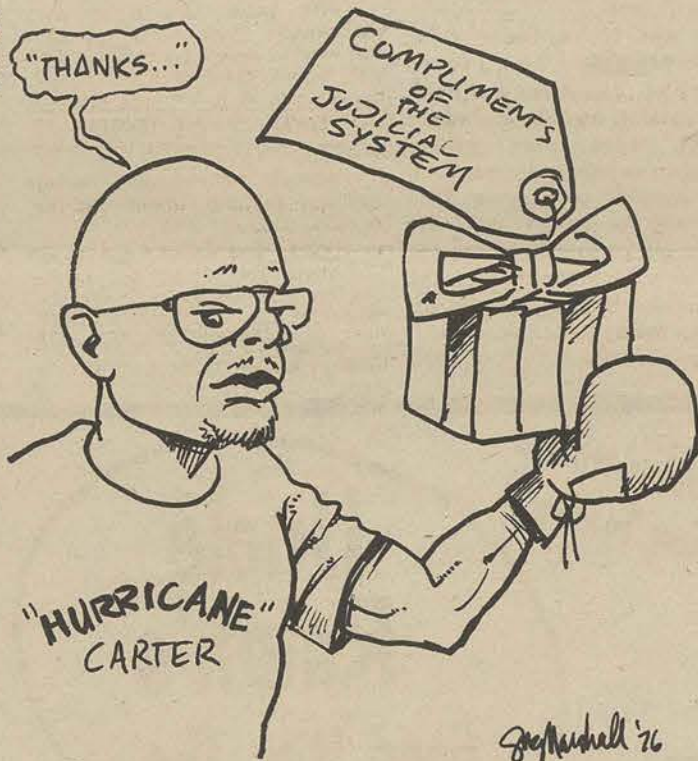 "THANKS..."
COMPLIMENTS
OF
THE
JUDICIAL
SYSTEM
"HURRICANE"
CARTER
Greg Marshall '76